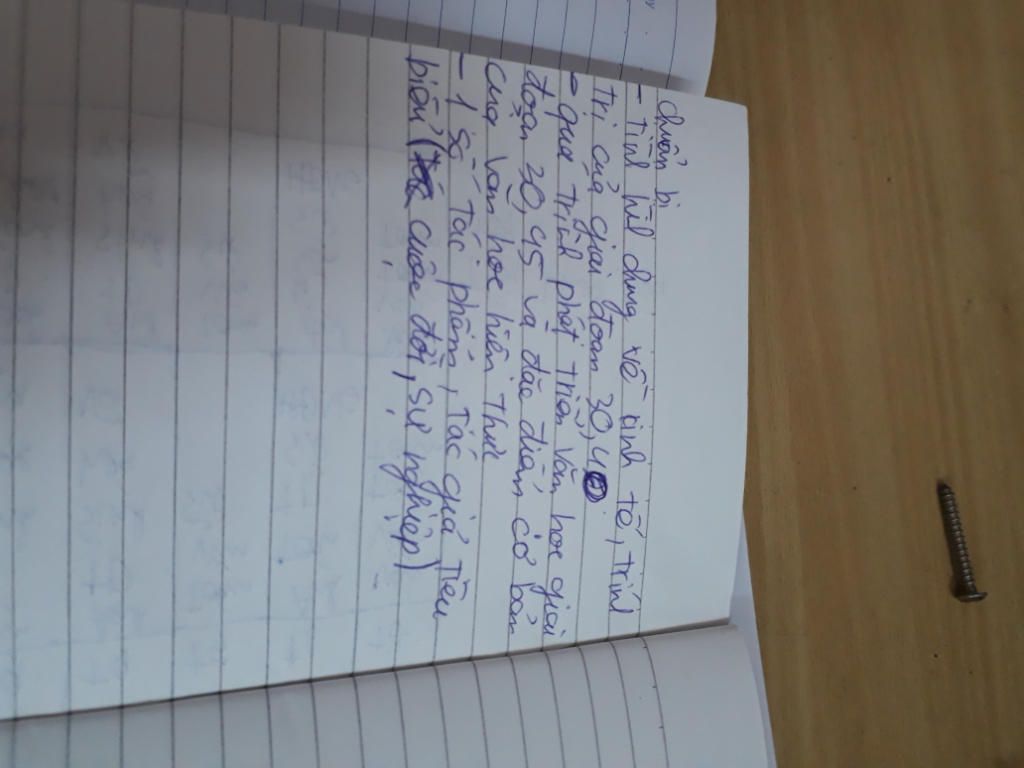 chuẩn bị
- Tình hình chung về kinh tế, trính
trị của giai đoạn 30, 4
- quá trình phát triển văn học giai
đoạn 30, 45 và đặc điểm cơ bản
của văn học hiện thực
- 1 số tác phẩm, tác giả tiêu
biểu ( cuộc đời, sự nghiệp)